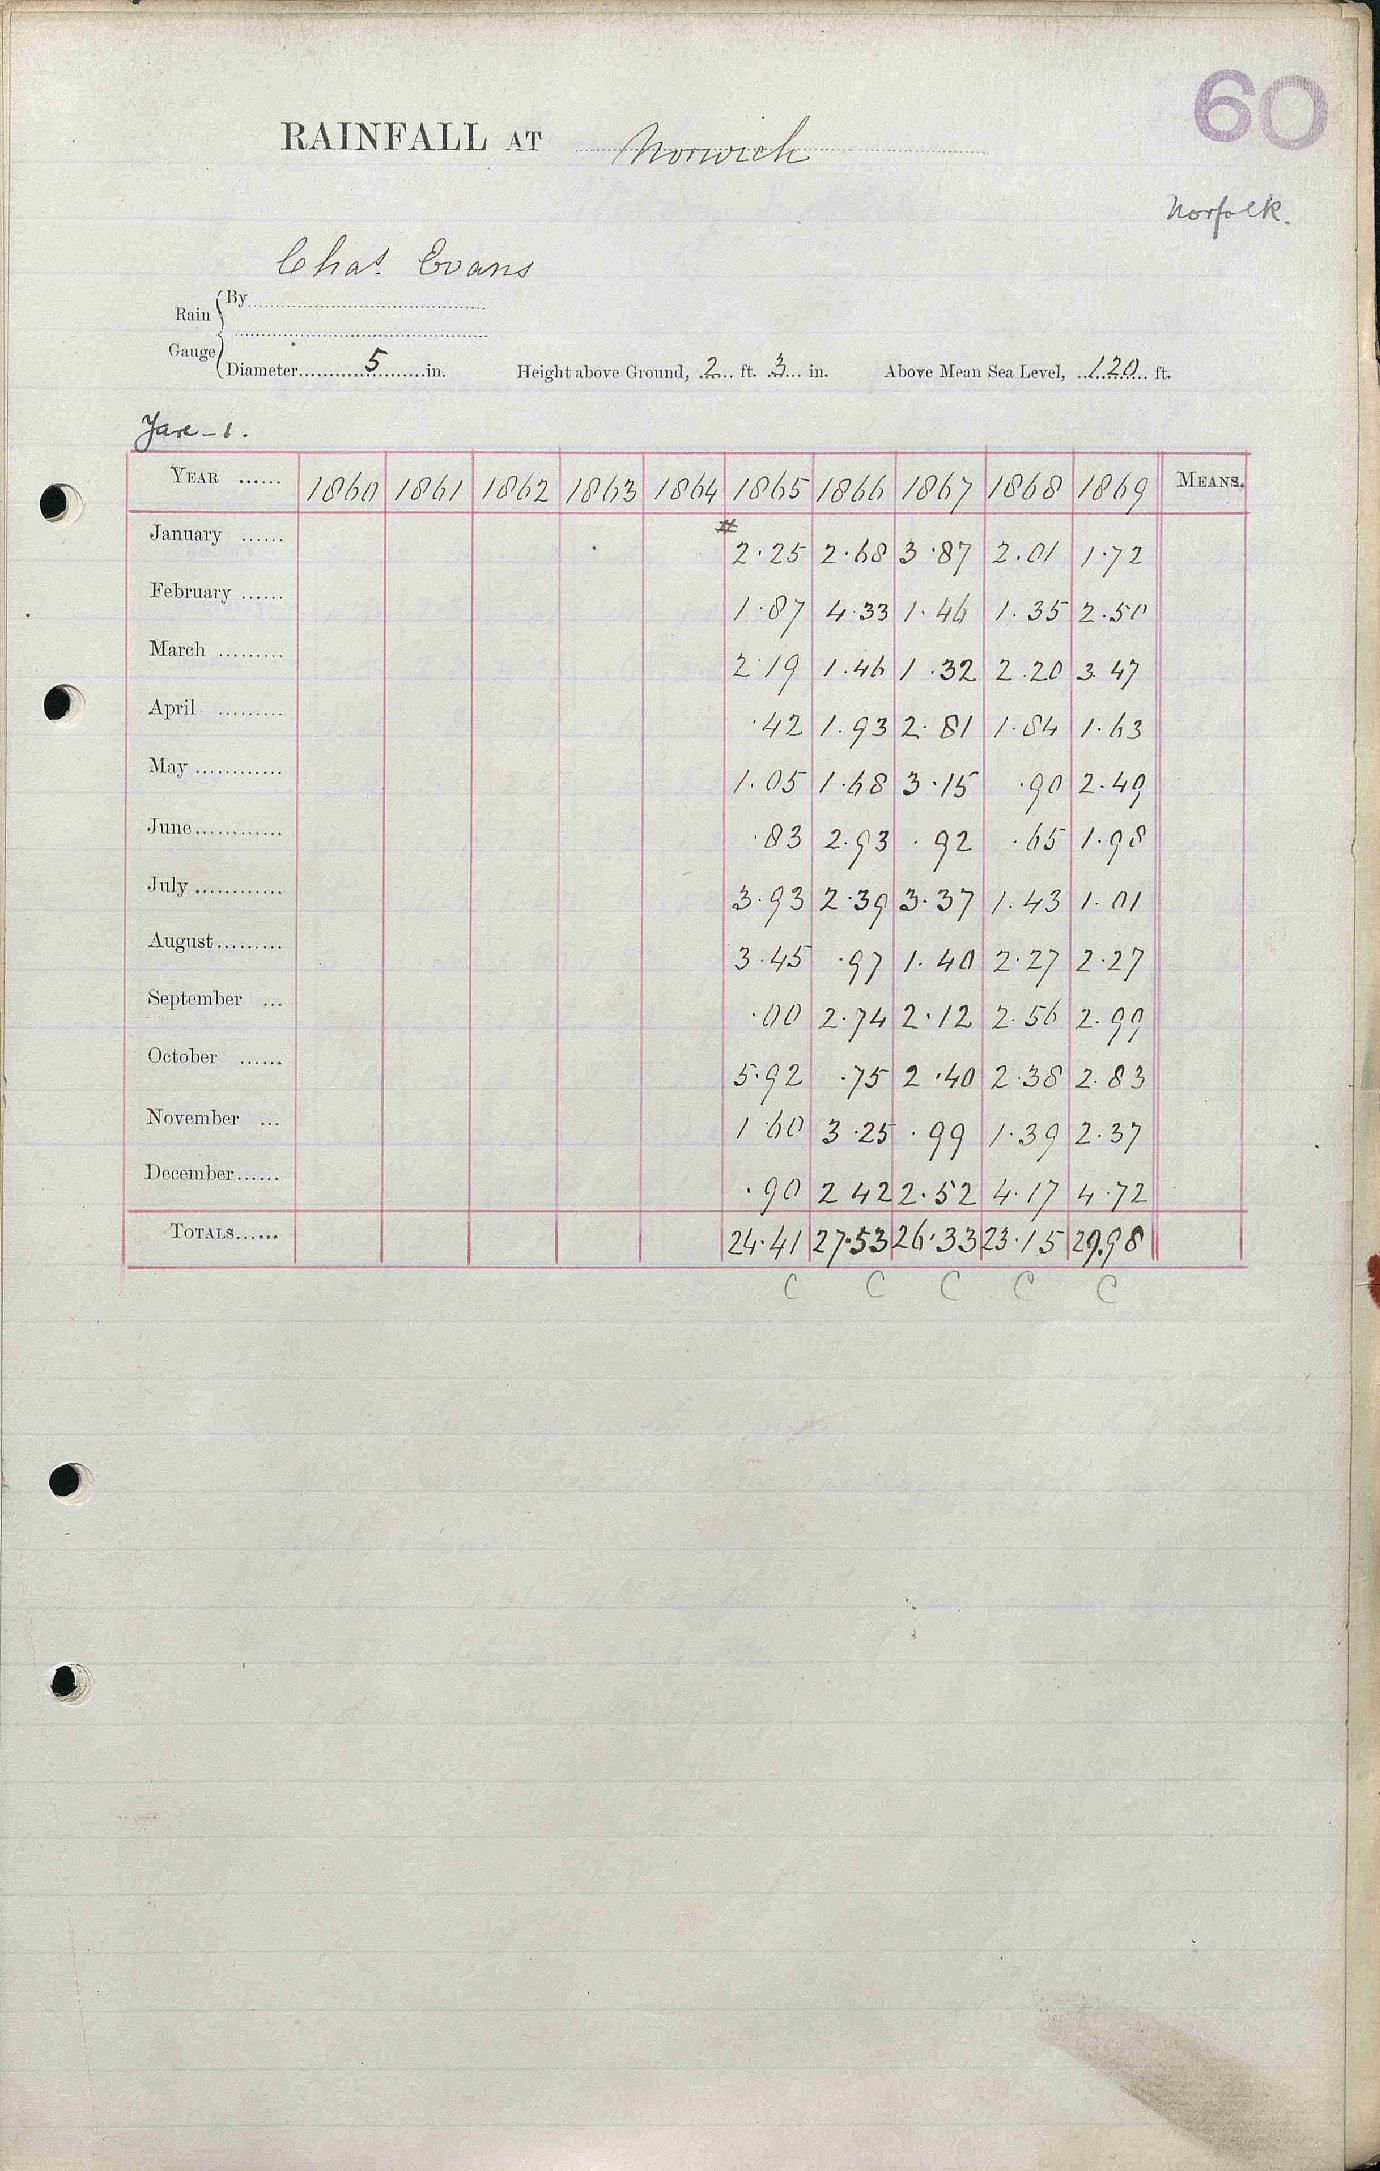 60
RAINFALL AT Norwich
Norfolk.
Chas. Evans
Rain Gauge { By
Diameter 5 in. Height above Ground, 2 ft. 3 in. Above Mean Sea Level, 120 ft.
Yare - 1.
YEAR ...... 1860 1861 1862 1863 1864 1865 1866 1867 1868 1869 MEANS.
#
January ...... 2.25 2.68 3.87 2.01 1.72
February ...... 1.87 4.33 1.46 1.35 2.50
March ......... 2.19 1.46 1.32 2.20 3.47
April ......... .42 1.93 2.81 1.84 1.63
May ............ 1.05 1.68 3.15 .90 2.49
June ............ .83 2.93 .92 .65 1.98
July ............ 3.93 2.39 3.37 1.43 1.01
August ......... 3.45 .97 1.40 2.27 2.27
September ... .00 2.74 2.12 2.56 2.99
October ...... 5.92 .75 2.40 2.38 2.83
November ... 1.60 3.25 .99 1.39 2.37
December ...... .90 2 42 2.52 4.17 4.72
TOTALS ...... 24.41 27.53 26.33 23.15 29.98
C C C C C